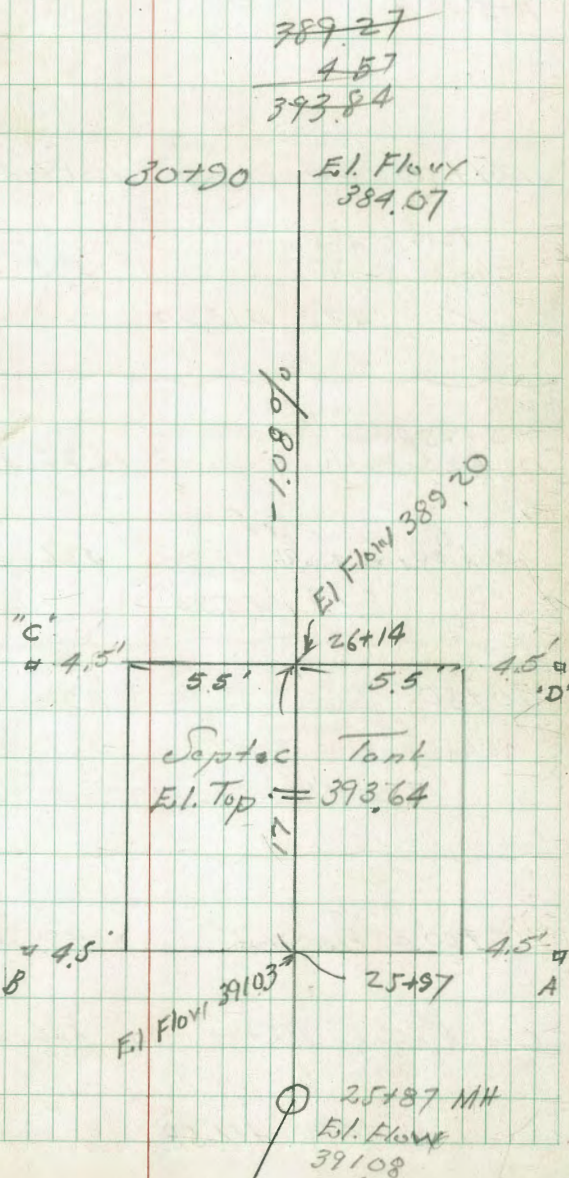 389.27
4.57
393.84
30+90
El. Flow
384.07
-1.08%
El Flow 389.20
26+14
"C"
4.5'
5.5'
5.5'
4.5'
"D"
Septic Tank
El. Top = 393.64
17
4.5
4.5'
B
A
El Flow 391.03
25+97
25+87 MH
El. Flow
391.08